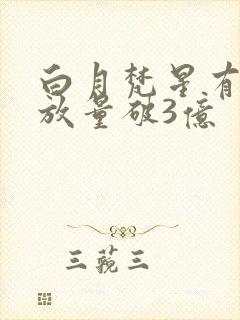 白月梵星有
放量破3億
三蘋三